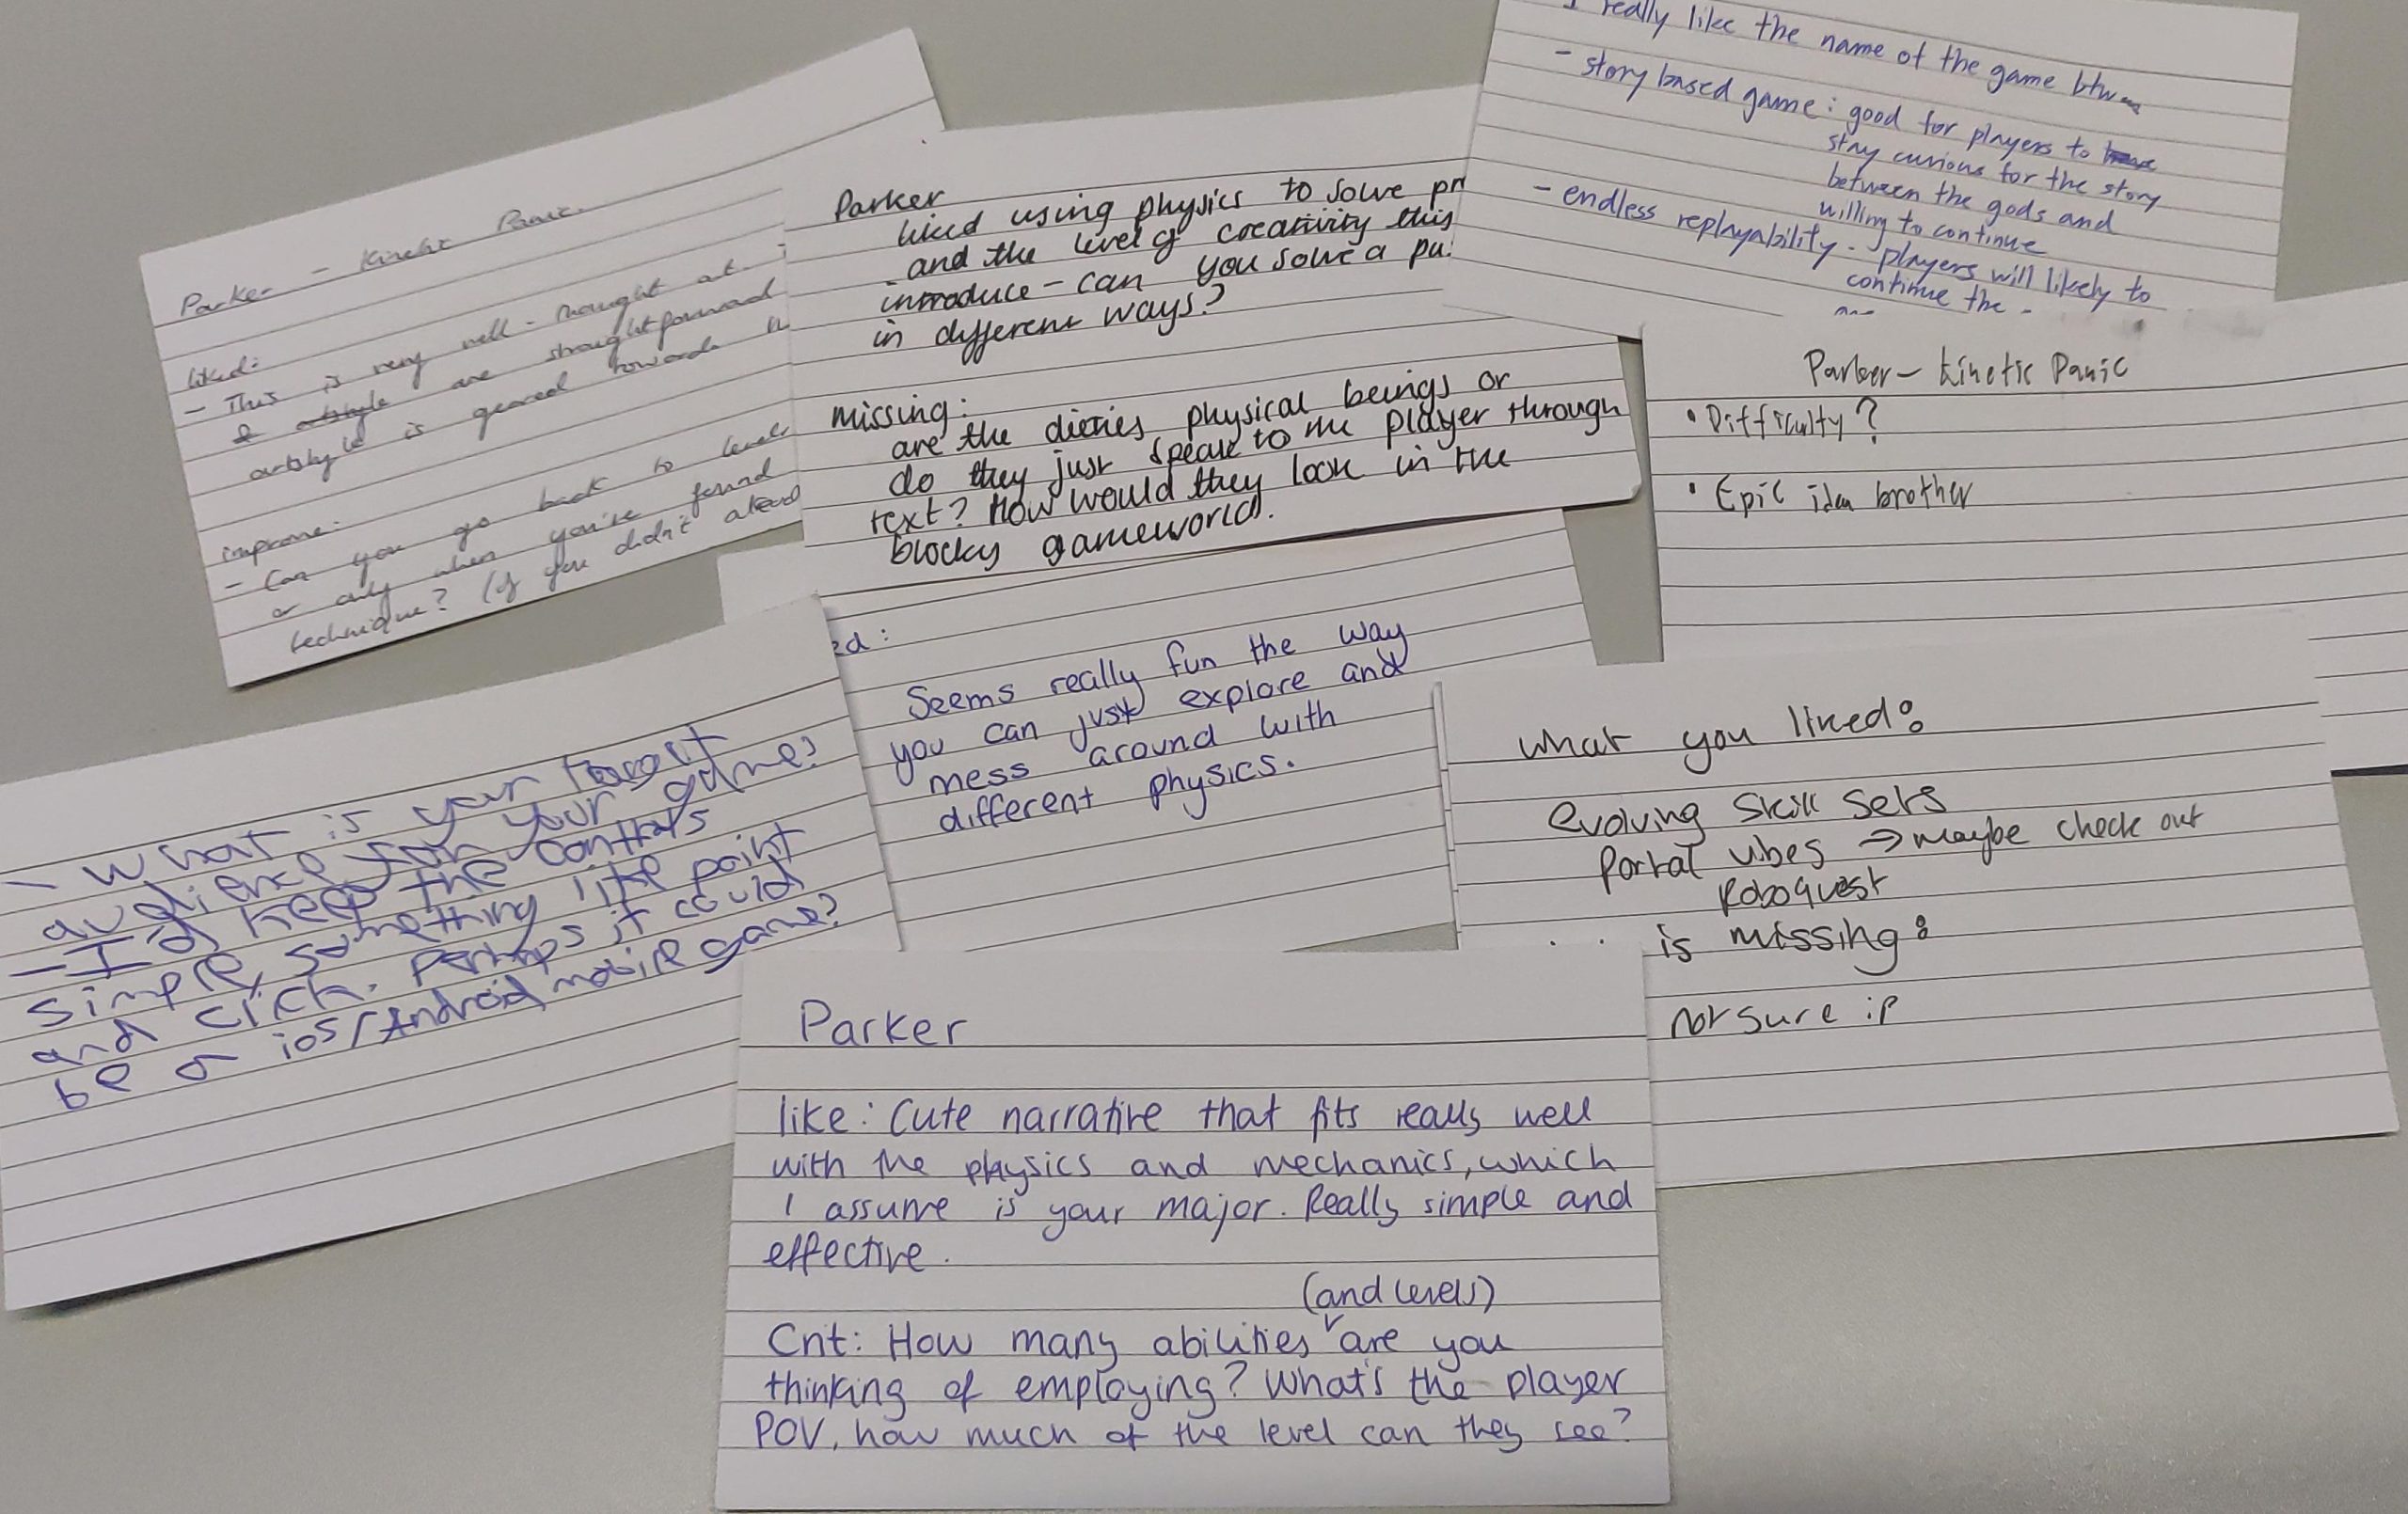 Parker - Kinetic Panic.
liked:
- This is very well-thought at
& are straightforward
artstyle is geared towards
improve:
- Can you go back to levels
or only when you've found
technique? (if you didn't
Parker
liked using physics to solve
and the level of creativity this
introduce - can you solve a
in different ways?
missing:
are the dieties physical beings or
do they just speak to the player through
text? How would they look in the
blocky gameworld.
I really like the name of the game btw
- story based game: good for players to
stay curious for the story
between the gods and
willing to continue
- endless replayability - players will likely to
continue the
Parker - Kinetic Panic
• Difficulty?
• Epic idea brother
- What is your
audience for your game?
- I'd keep the controls
simple, something like point
and click. Perhaps it could
be a ios/Android mobile game?
ed:
Seems really fun the way
you can just explore and
mess around with
different physics.
what you liked:
evolving skill sets
Portal vibes → maybe check out
Roboquest
is missing:
not sure if
Parker
like: Cute narrative that fits really well
with the physics and mechanics, which
I assume is your major. Really simple and
effective.
(and levels)
Cnt: How many abilities are you
thinking of employing? What's the player
POV, how much of the level can they see?